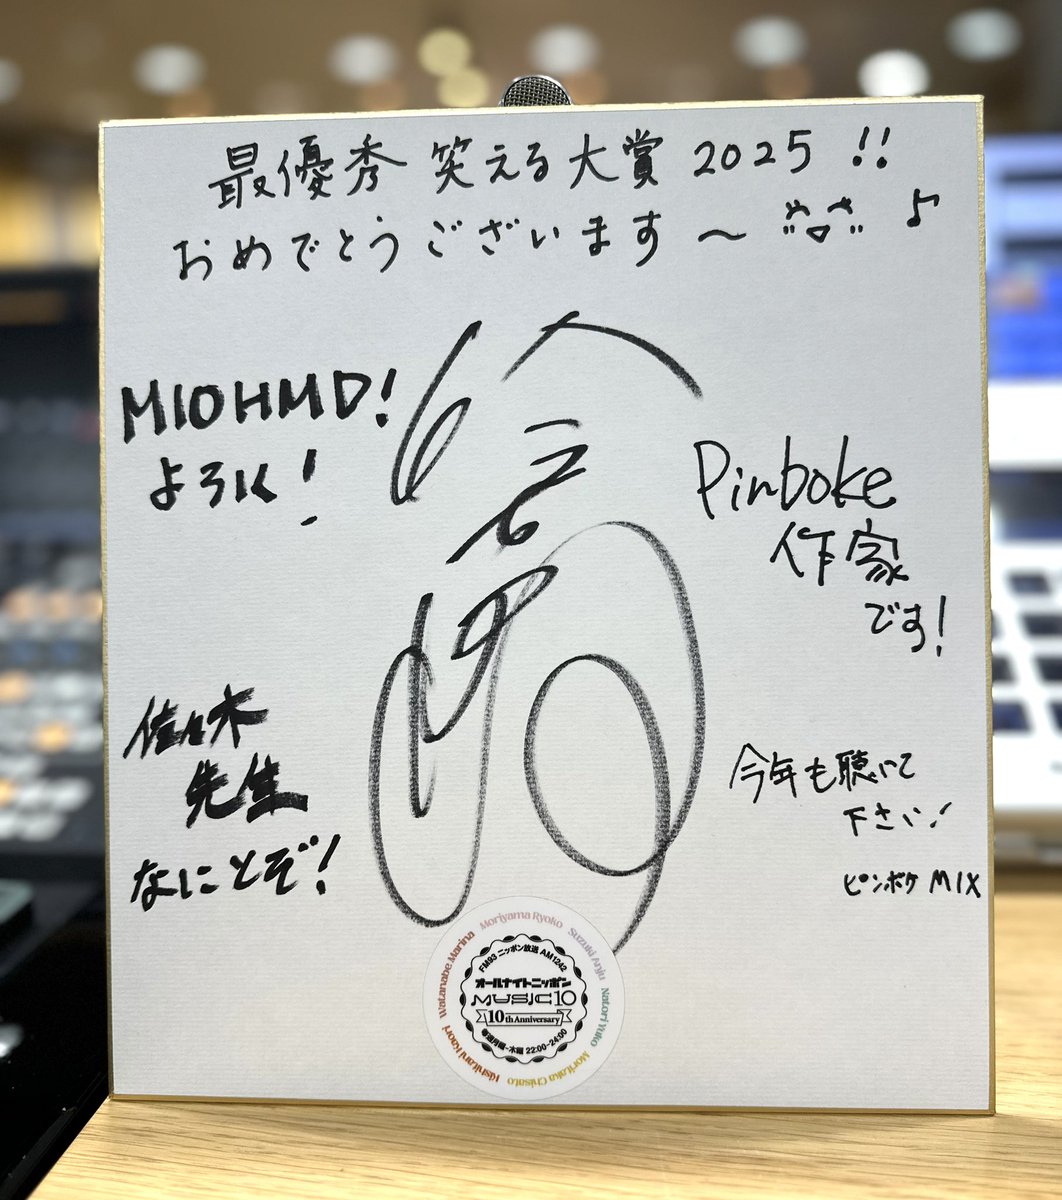 最優秀 笑える大賞 2025 !!
おめでとうございます〜 ♪
M10HMD!
よろK!
Pinboke
作家
です!
佐々木
先生
なにとぞ!
今年も聴いて
下さい!
ピンボケ MIX
Moriyama Ryoko
Suzuki Anju
Natori Yuko
Moritaka Chisato
Kishitani Kaori
Watanabe Marina
FM93 ニッポン放送 AM1242
オールナイトニッポン
MUSIC10
10th Anniversary
毎週月曜-木曜 22:00-24:00